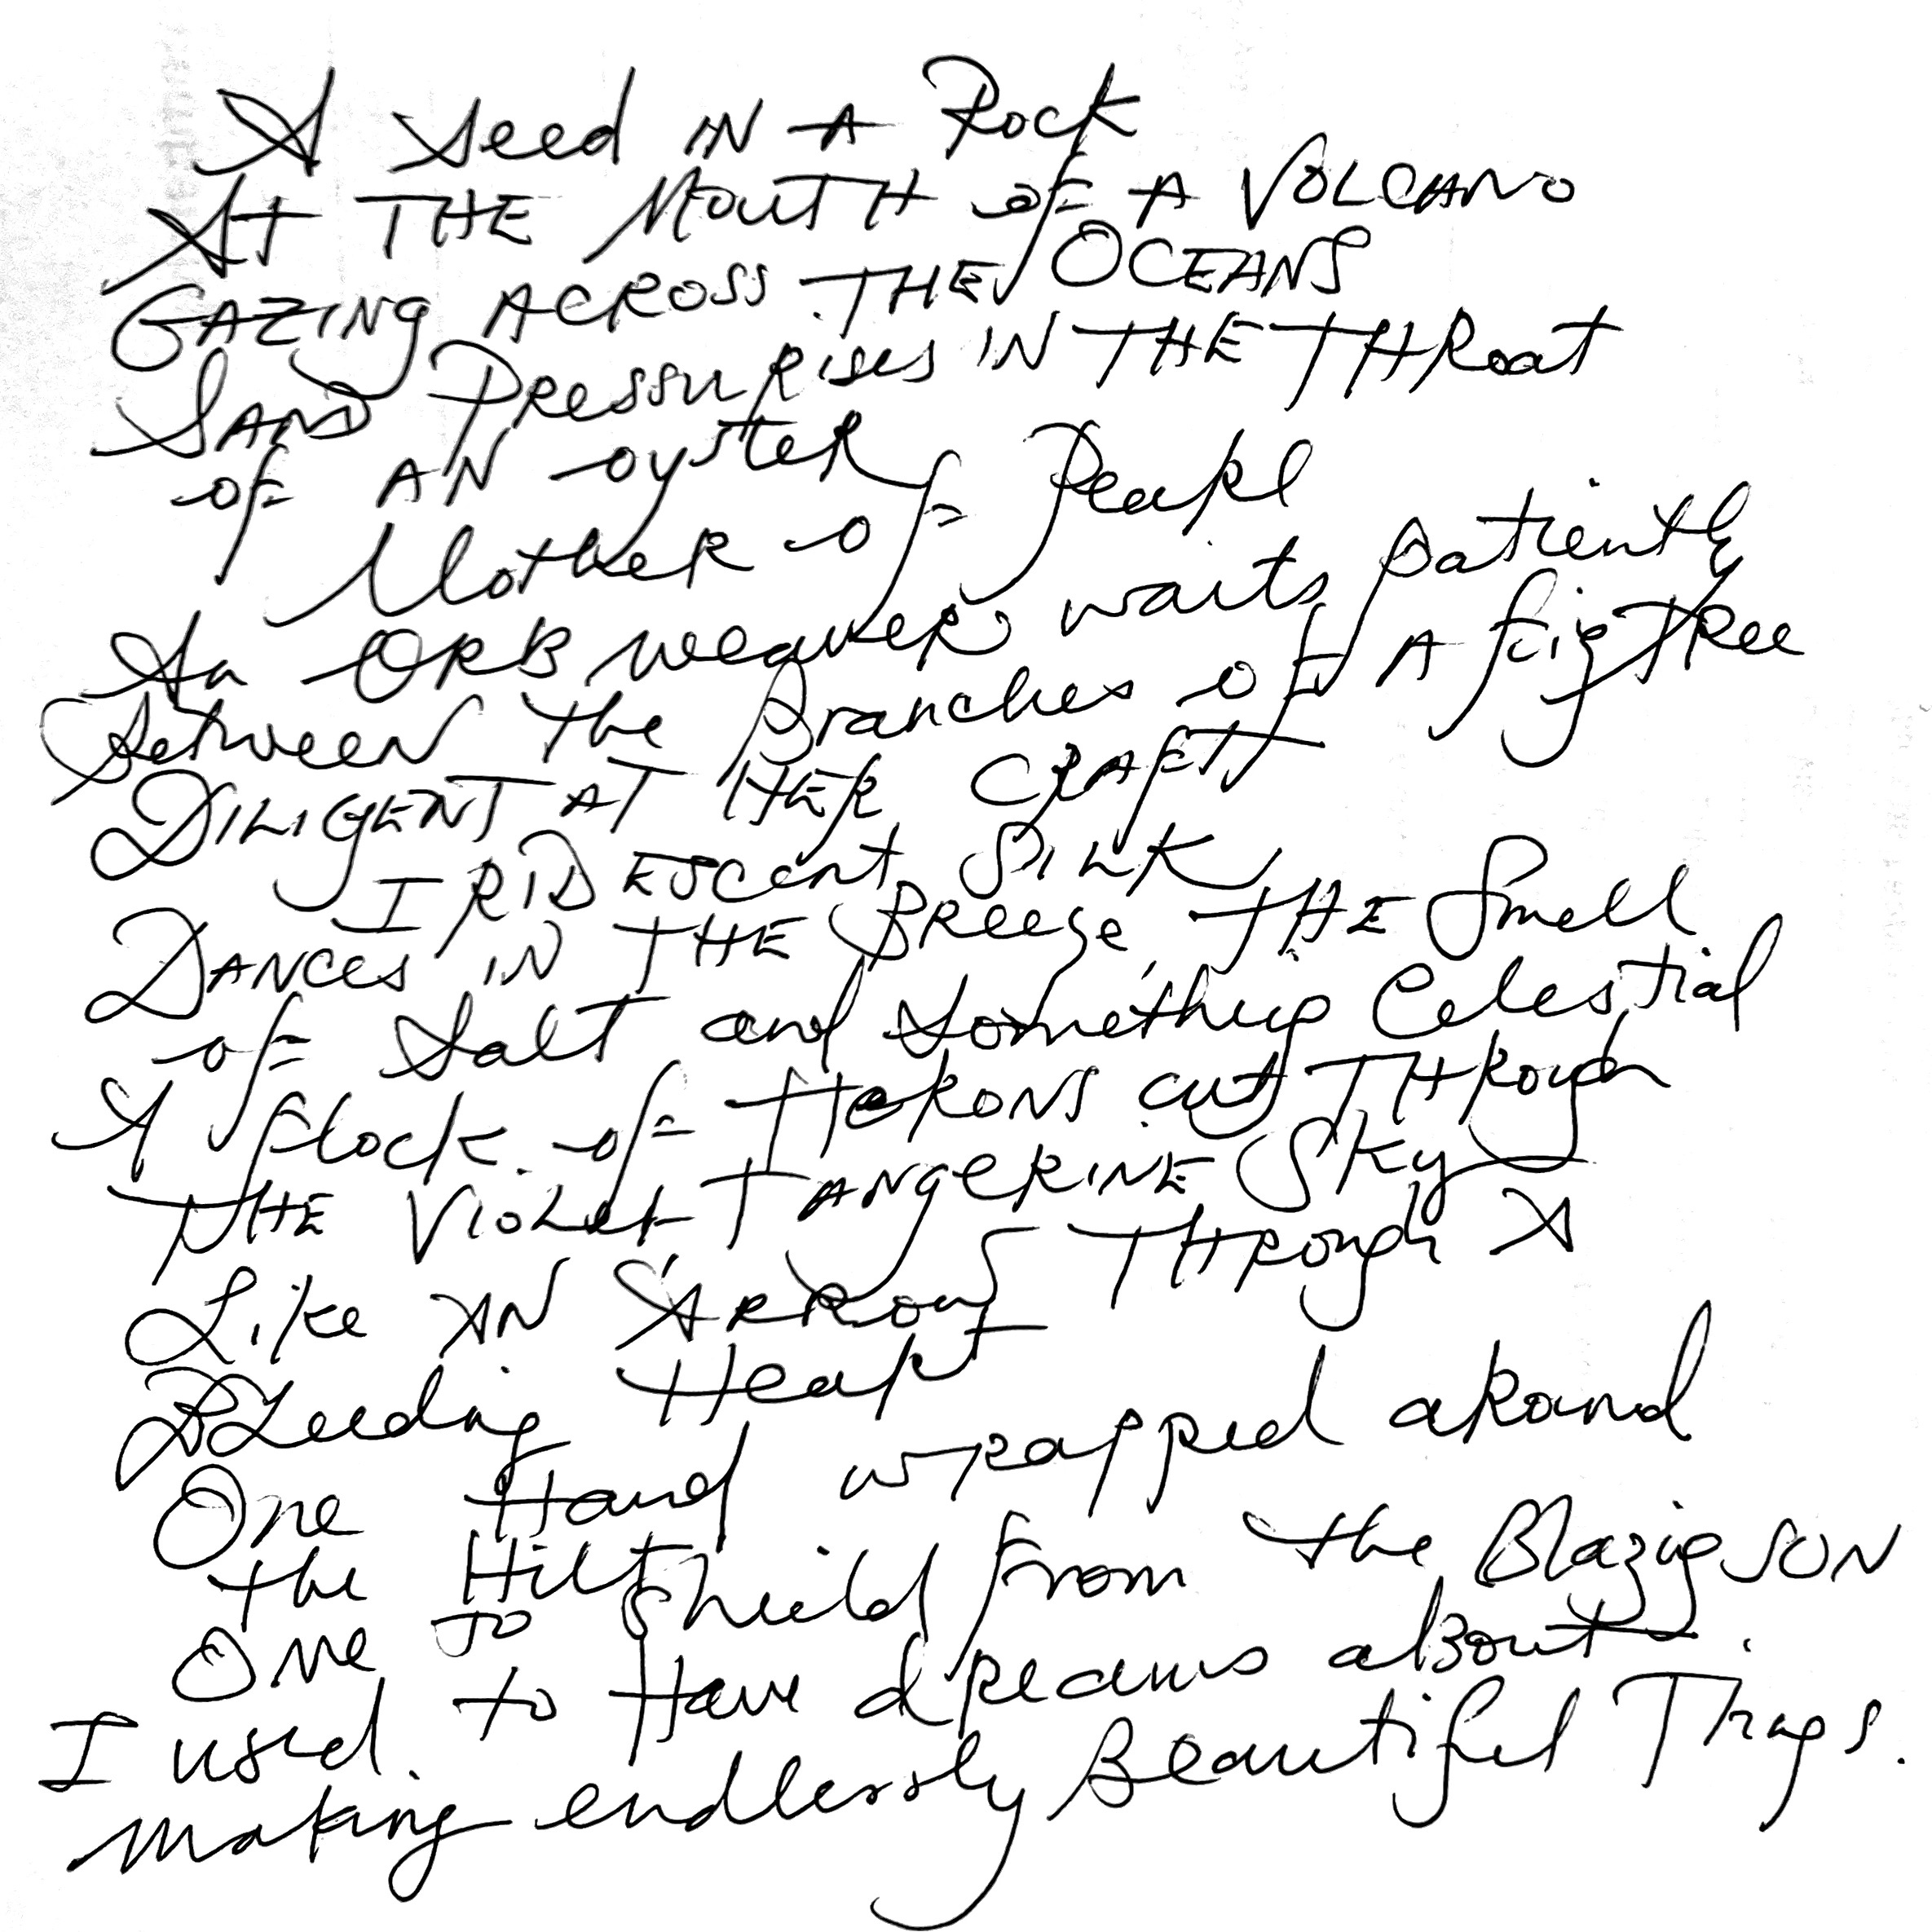 A Seed IN A Rock
At THE MOUTH of A VOLCANO
GAZING ACROSS THE OCEANS
SAND PRessuRises IN THE THRoat
of AN oysteR
Mother of Pearl
An ORB weaver waits patiently
Between the Branches of A fig tree
DILIGENT AT HER CRAFT
IRIDEScent SILK
DANCes IN THE BReeze THE Smell
of Salt and something Celestial
A flock of HeRONS cut THRough
THE Violet TANgeRINE Sky
Like AN ARRow THRough A
BLeeding Heart
One Hand wrapped around
the Hilt
One to shield from the Blazing SON
I used to Have dreams about
making endlessly Beautiful Things.